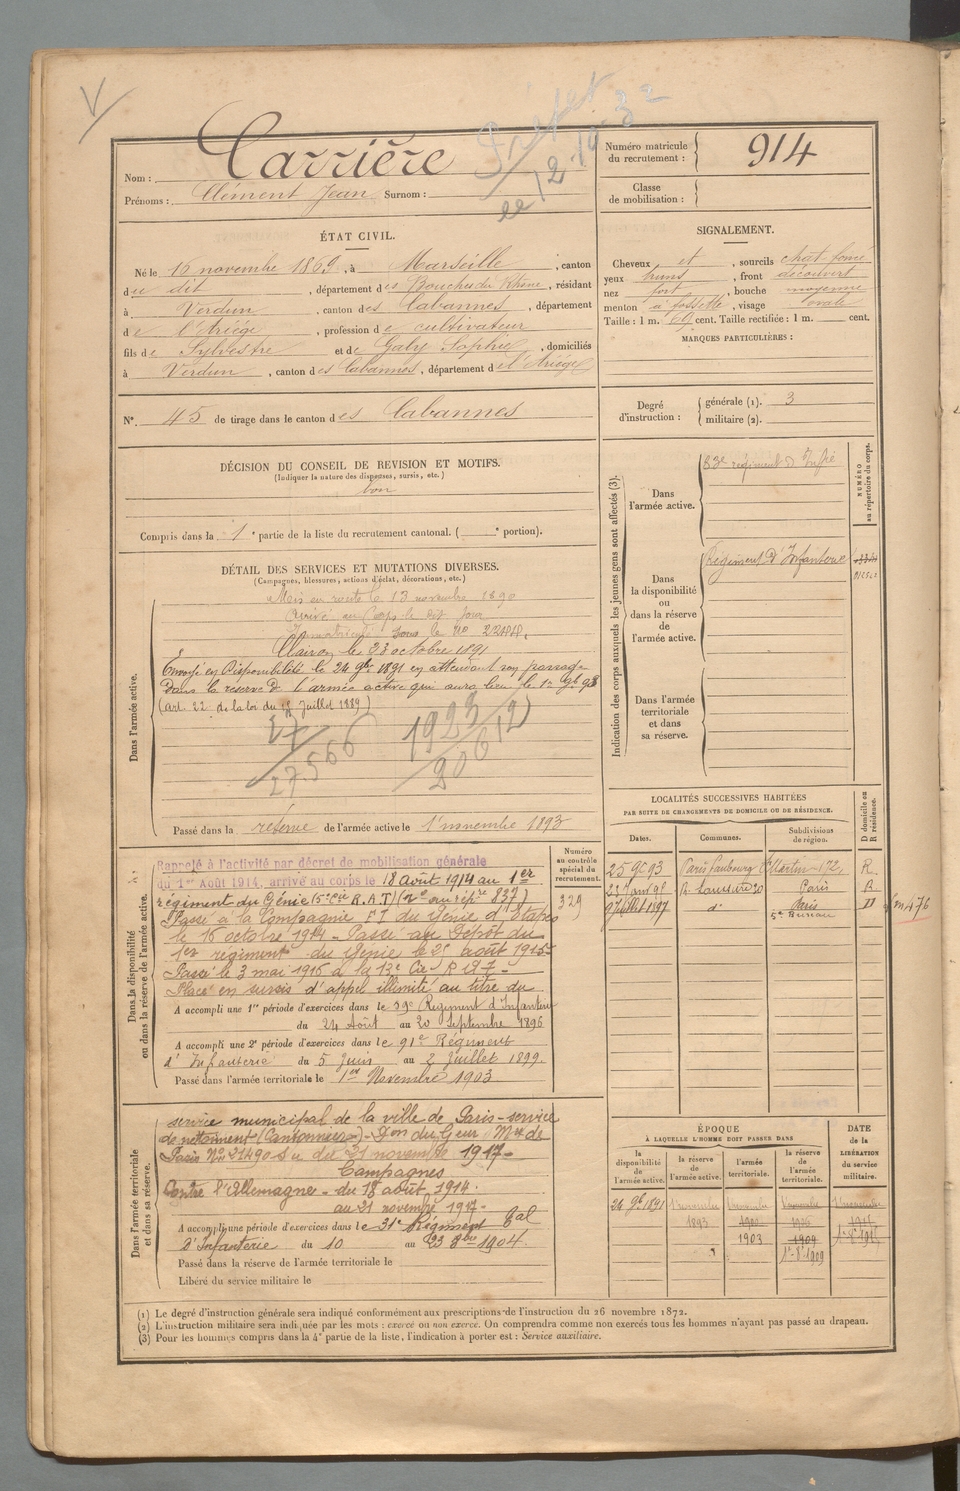 Nom : Carrière
Prénoms : Clément Jean Surnom :
Numéro matricule du recrutement : 914
Classe de mobilisation :
ÉTAT CIVIL.
Né le 16 novembre 1869, à Marseille, canton
du dit, département des Bouches du Rhône, résidant
à Verdun, canton des Cabannes, département
de l'Ariège, profession de cultivateur
fils de Sylvestre et de Galy Sophie, domiciliés
à Verdun, canton des Cabannes, département de l'Ariège
N° 45 de tirage dans le canton des Cabannes
SIGNALEMENT.
Cheveux et, sourcils chat. foncé
yeux bruns, front découvert
nez fort, bouche moyenne
menton à fossette, visage ovale
Taille : 1 m. 69 cent. Taille rectifiée : 1 m. cent.
MARQUES PARTICULIÈRES :
Degré d'instruction : générale (1). 3
militaire (2).
DÉCISION DU CONSEIL DE REVISION ET MOTIFS.
(Indiquer la nature des dispenses, sursis, etc.)
bon
Compris dans la 1e partie de la liste du recrutement cantonal. ( e portion).
DÉTAIL DES SERVICES ET MUTATIONS DIVERSES.
(Campagnes, blessures, actions d'éclat, décorations, etc.)
Dans l'armée active.
Mis en route le 13 novembre 1890
Arrivé au Corps le dit jour
Immatriculé sous le no
Clairon le 23 octobre 1891
Envoyé en Disponibilité le 24 9bre 1891 en attendant son passage
Dans la réserve de l'armée active qui aura lieu le 1er 9b 93
(art. 22 de la loi du 15 Juillet 1889)
27566
1923
20612
Passé dans la réserve de l'armée active le 1er novembre 1893
Indication des corps auxquels les jeunes gens sont affectés (3).
NUMÉRO au répertoire du corps.
Dans l'armée active.
83e régiment d'Infie
Dans la disponibilité ou dans la réserve de l'armée active.
Régiment d'Infanterie
Dans l'armée territoriale et dans sa réserve.
LOCALITÉS SUCCESSIVES HABITÉES
PAR SUITE DE CHANGEMENTS DE DOMICILE OU DE RÉSIDENCE.
Dates. Communes. Subdivisions de région. D domicile ou R résidence.
25 9bre 93 Paris Faubourg St Martin 172, R.
Paris R
1897 do Paris D
5e Bureau
m 476
Dans la disponibilité ou dans la réserve de l'armée active.
Numéro au contrôle spécial du recrutement.
329
Rappelé à l'activité par décret de mobilisation générale
du 1er Août 1914, arrivé au corps le 18 Août 1914 au 1er
régiment du Génie (5e Cie R.A.T) (No au rép.re 837)
Passé à la Compagnie du Génie d'Etapes
le 16 octobre 1914 - Passé au Dépôt du
1er régiment du Génie le 25 août 1915
Passé le 3 mai 1916 à la 13e Cie
Placé en sursis d'appel illimité au titre du
A accompli une 1re période d'exercices dans le 39e Régiment d'Infanterie
du 24 Août au 20 Septembre 1896
A accompli une 2e période d'exercices dans le 91e Régiment
d'Infanterie du 5 Juin au 2 Juillet 1899.
Passé dans l'armée territoriale le 1er Novembre 1903
Dans l'armée territoriale et dans sa réserve.
service municipal de la ville de Paris - service
de nettoiement (Cantonniers) - Don du Geur Mre de
Paris No 21490 S u du 21 novembre 1917 -
Campagnes
Contre l'Allemagne - du 18 août 1914.
au 21 novembre 1917 -
A accompli une période d'exercices dans le 31e Régiment Tal
d'Infanterie du 10 au 23 1904.
Passé dans la réserve de l'armée territoriale le
Libéré du service militaire le
ÉPOQUE
À LAQUELLE L'HOMME DOIT PASSER DANS
la disponibilité de l'armée active. la réserve de l'armée active. l'armée territoriale. la réserve de l'armée territoriale. DATE de la LIBÉRATION du service militaire.
24 9bre 1891 1er novembre 1893 1er novembre 1900 1er novembre 1906 1er novembre
1903 1909
1909
(1) Le degré d'instruction générale sera indiqué conformément aux prescriptions de l'instruction du 26 novembre 1872.
(2) L'instruction militaire sera indiquée par les mots : exercé ou non exercé. On comprendra comme non exercés tous les hommes n'ayant pas passé au drapeau.
(3) Pour les hommes compris dans la 4e partie de la liste, l'indication à porter est : Service auxiliaire.